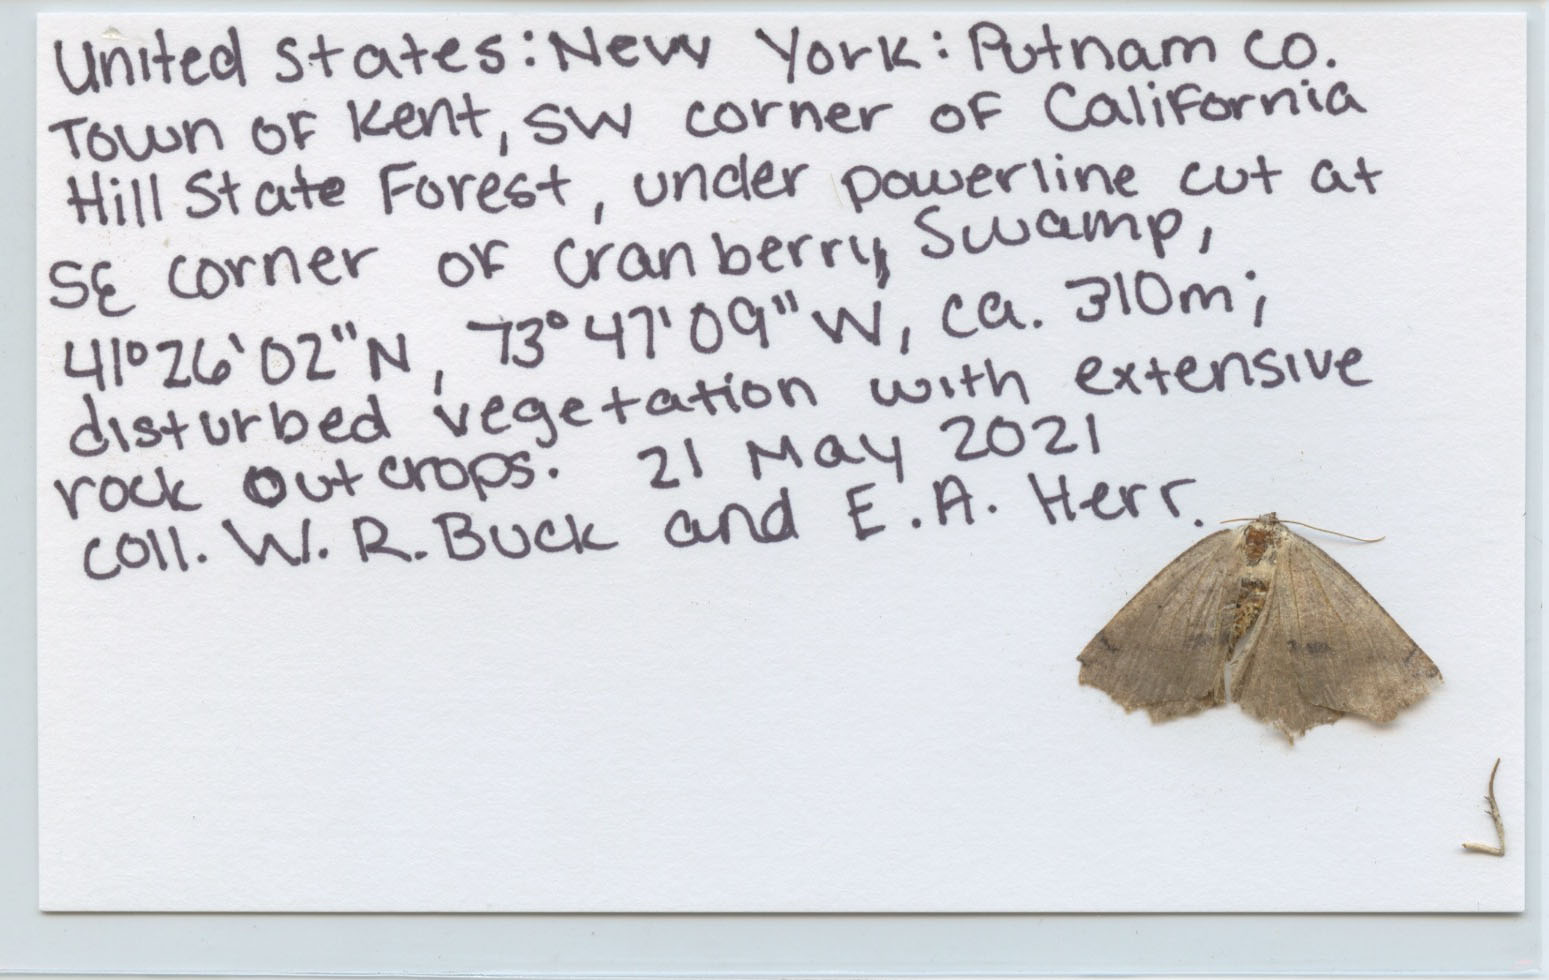 United States: New York: Putnam Co.
Town of Kent, SW corner of California
Hill State Forest, under powerline cut at
SE corner of Cranberry Swamp,
41°26'02"N, 73°47'09"W, ca. 310m;
disturbed vegetation with extensive
rock outcrops. 21 May 2021
coll. W. R. Buck and E. A. Herr.